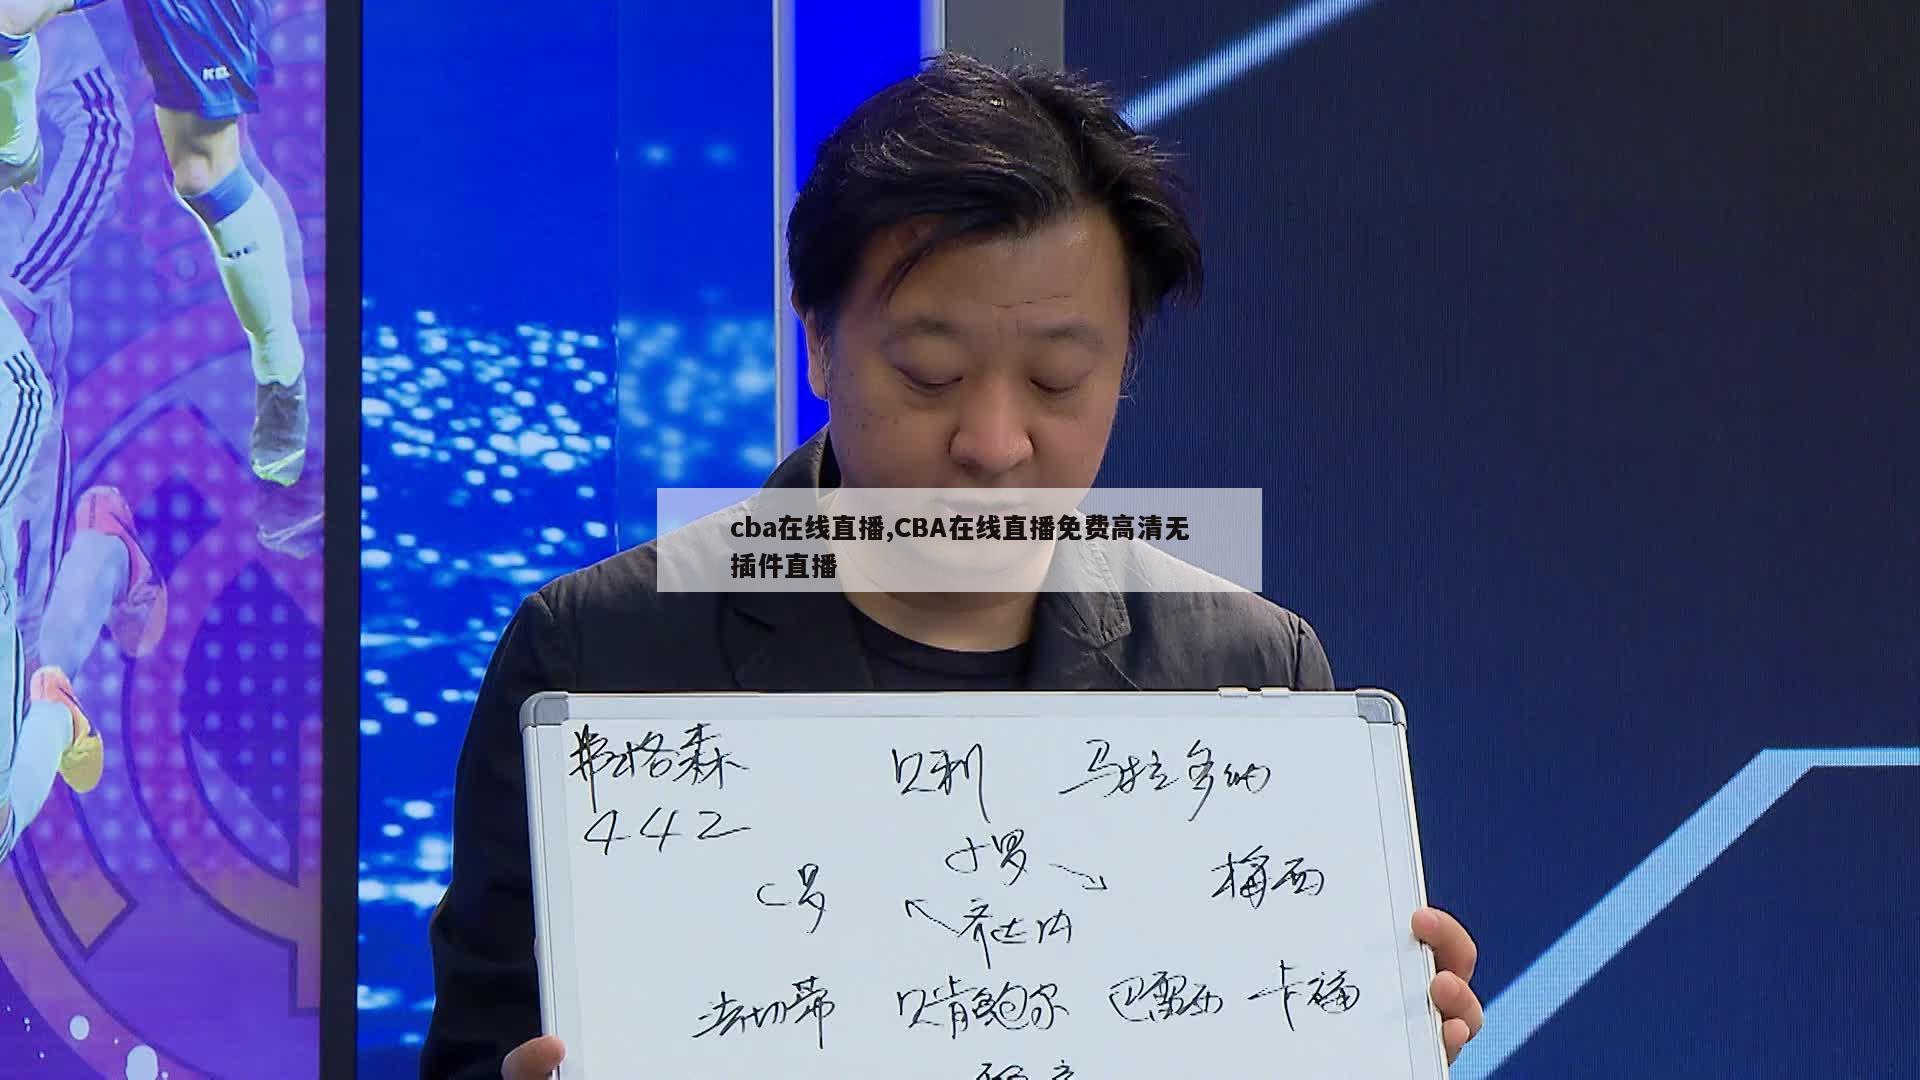 cba在线直播,CBA在线直播免费高清无
插件直播
弗格森 贝利 马拉多纳
442
小罗
C罗 梅西
齐达内
法切蒂 贝肯鲍尔 巴雷西 卡福